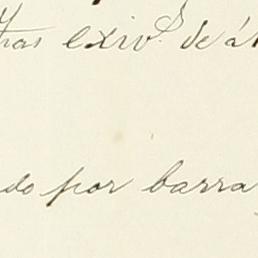 tras exiv.s de á
do por barra